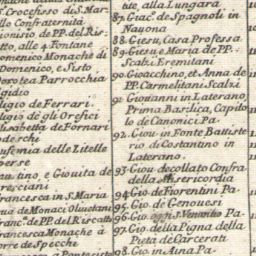 S. Crocefisso di S. Mar-
lo Confraternità
ionisio de PP. del Ris-
tto, alle 4. Fontane
omenico Monache di
Domenico, e Sisto
orotea Parrocchia
gidio
ligio de Ferrari.
ligio de gli Orefici
lisabetta de Fornari
odeschi
ufemia delle Zitelle
perse
austino, e Giovita de
resciani
rancesca in S. Maria
ua de Monaci Olivetani
ranc. de PP. del Riscatto
rancesca Monache à
orre de Specchi
ute, alla Lungara
87. Giac. de Spagnoli in
Nauona
88. Giesu, Casa Professa
89. Giesu e Maria de PP.
Scalzi Eremitani
90. Gioacchino, et Anna de
PP. Carmelitani Scalzi
91. Giovanni in Laterano,
Prima Basilica, Capito
lo de Canonici. Pa.
92. Giou. in Fonte Battiste
rio di Costantino in
Laterano.
93. Giou. decollato Confra
della Misericordia
94. Gio. de Fiorentini Pa.
95. Gio. de Genouesi
96. Gio. Pa.
97. Gio. della Pigna della
Pietà de Carcerati
98. Gio. in Aina Pa.